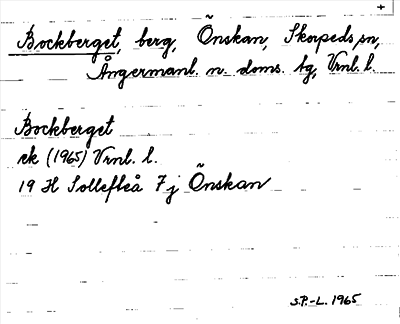 Bockberget, berg, Önskan, Skorpeds sn,
Ångermanl. n. doms. tg, Vrnl. l.
Bockberget
ek (1965) Vrnl. l.
19 H Sollefteå 7j Önskan
S.P.-L. 1965